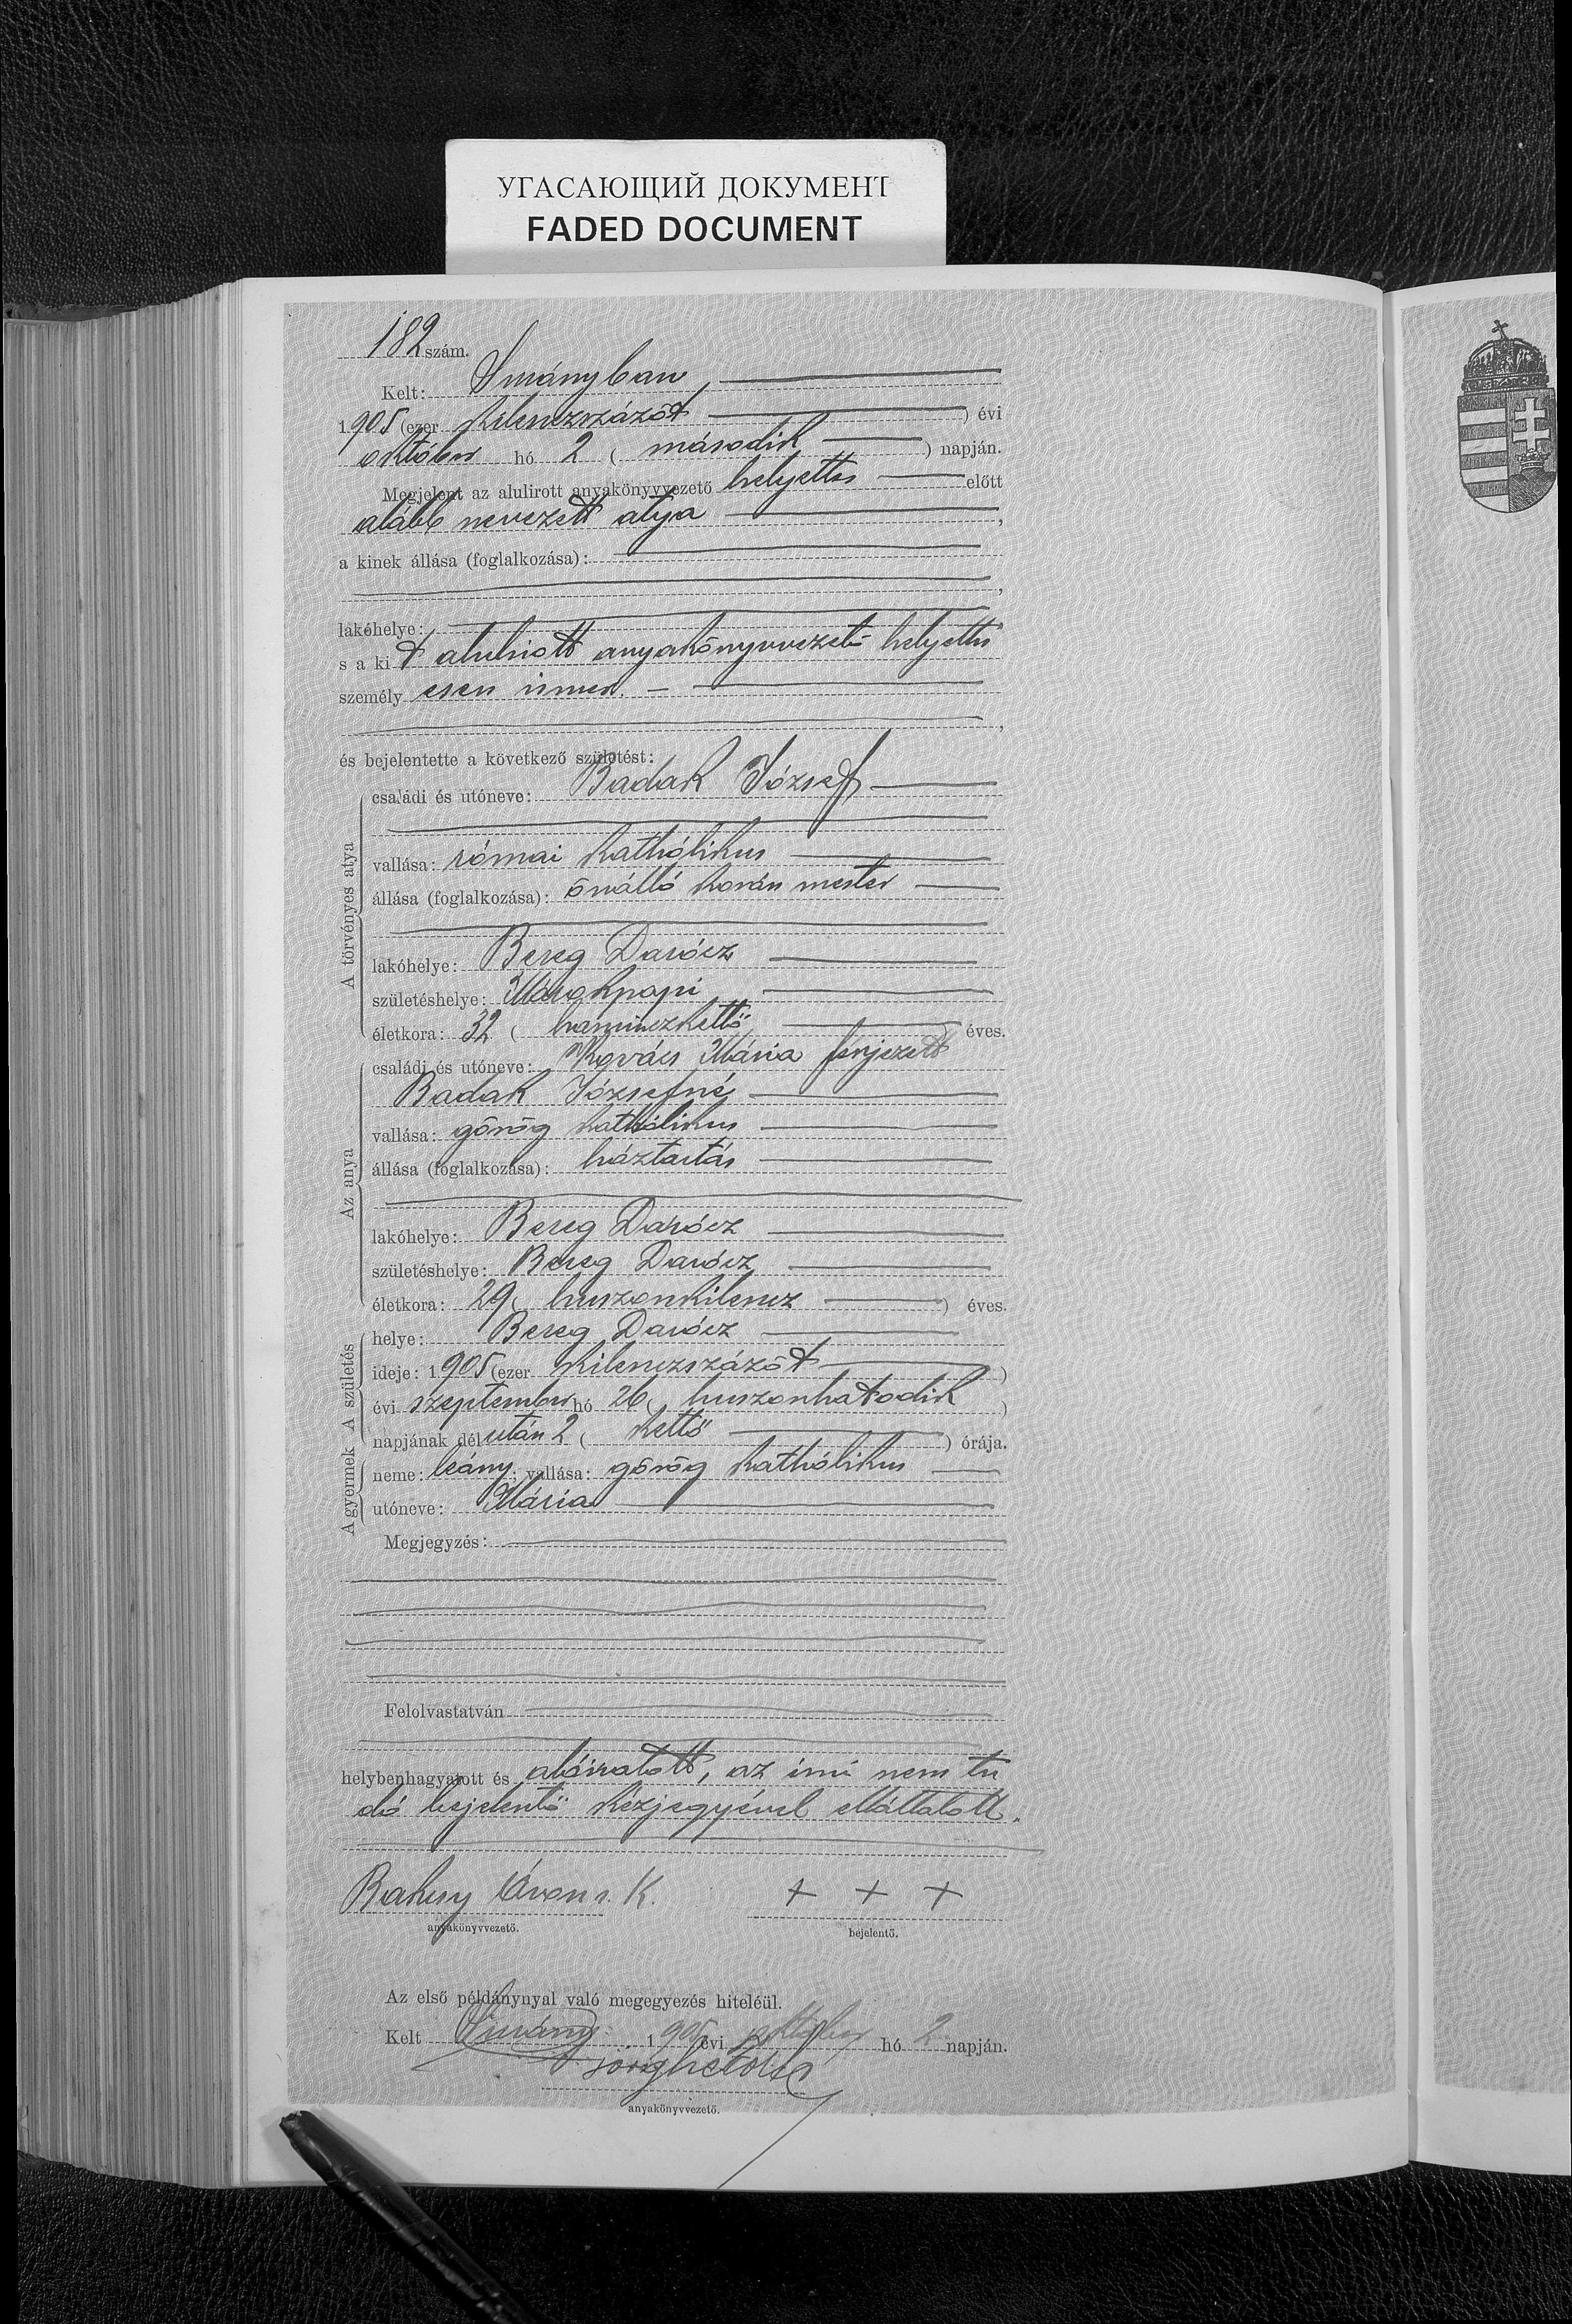 УГАСАЮЩИЙ ДОКУМЕНТ
FADED DOCUMENT
182 szám.
Kelt: Surányban,
1905 (ezer kilenczszázöt) évi
október hó 2 (második) napján.
Megjelent az alulirott anyakönyvvezető helyettes előtt
alább nevezett atya,
a kinek állása (foglalkozása):
,
lakóhelye:
s a kit alulirott anyakönyvvezető helyettes
személyesen ismer. –
,
és bejelentette a következő születést:
A törvényes atya
családi és utóneve: Badak József
vallása: római katholikus
állása (foglalkozása): önálló kovás mester
lakóhelye: Bereg Darócz
születéshelye: Márokpapi
életkora: 32 (harminczkettő) éves.
Az anya
családi és utóneve: Kovács Mária férjezett
Badak Józsefné
vallása: görög katholikus
állása (foglalkozása): háztartás
lakóhelye: Bereg Darócz
születéshelye: Bereg Darócz
életkora: 29 (huszonkilencz) éves.
A születés
helye: Bereg Darócz
ideje: 1905 (ezer kilenczszázöt)
évi szeptember hó 26 (huszonhatodik)
napjának délután 2 (kettő) órája.
A gyermek
neme: leány; vallása: görög katholikus
utóneve: Mária
Megjegyzés:
Felolvastatván
helybenhagyatott és aláiratott, az irni nem tu
dó bejelentő kézjegyével elláttatott.
s. k. + + +
anyakönyvvezető. bejelentő.
Az első példánynyal való megegyezés hiteléül.
Kelt Surány 1905 évi október hó 2 napján.
anyakönyvvezető.